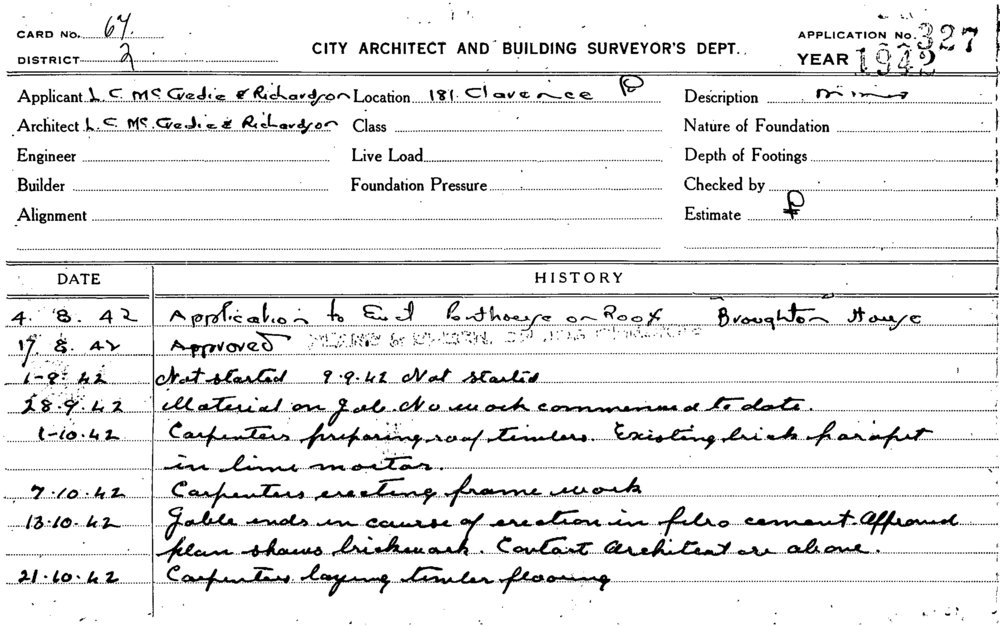 CARD No. 67.
DISTRICT 2
CITY ARCHITECT AND BUILDING SURVEYOR'S DEPT.
APPLICATION No. 327
YEAR 1942
Applicant L. C. Mc Credie & Richardson Location 181. Clarence Description
Architect L. C. Mc. Credie & Richardson Class Nature of Foundation
Engineer Live Load Depth of Footings
Builder Foundation Pressure Checked by
Alignment Estimate £
DATE HISTORY
4. 8. 42 Application to Erect Penthouse on Roof Broughton House
17. 8. 42 Approved
1-9-42 Not started 9.9.42 Not started
28.9.42 Material on job. No work commenced to date.
1-10.42 Carpenters preparing roof timbers. Existing brick parapet
in lime mortar.
7.10.42 Carpenters erecting frame work
13.10.42 Gable ends in course of erection in fibro cement. Approved
plan shows brickwork. Contact Architect re above.
21.10.42 Carpenters laying timber flooring